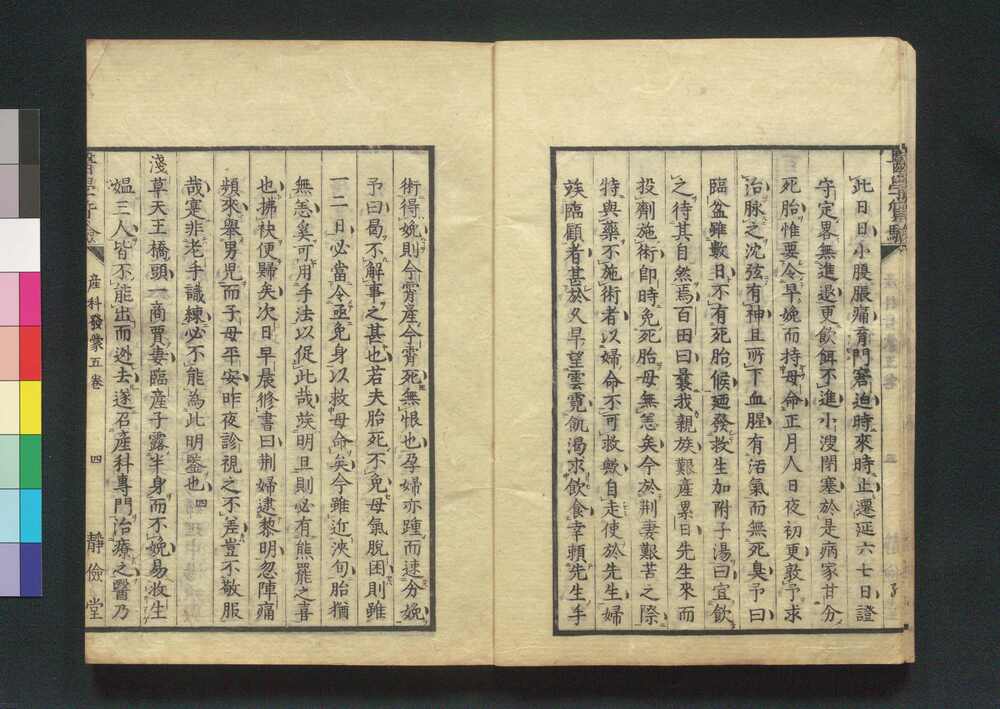 此日日小腹脹痛育門窘迫時來時止遷延六七日證
守定畧無進退更飲餌不進小溲閉塞於是病家甘分
死胎惟要令早娩而持母命正月人日夜初更敦予求
治脉之沈弦有神且所下血腥有活氣而無死臭予曰
臨盆雖數日不有死胎候廼發救生加附子湯曰宜飲
之待其自然焉百田曰曩我親族艱產累日先生來而
投劑施術即時免死胎母無恙矣今於荊妻艱苦之際
特與藥不施術者以婦命不可救歟自走使於先生婦
竢臨顧者甚於久旱望雲霓飢渴求飲食幸頼先生手
術得娩則今霄産今霄死無恨也孕婦亦踵而速分娩
予曰曷不解事之甚也若夫胎死不免母氣脫困則雖
一二日必當令亟免身以救母命矣今雖近浹旬胎猶
無恙矣可用手法以促此哉竢明旦則必有熊羆之喜
也拂袂便歸矣次日早晨脩書曰荊婦逮黎明忽陣痛
頻來舉男児而子母平安昨夜診視之不差豈不敬服
哉寔非老手識練必不能為此明鑒也
淺草天王橋頭一商賈妻臨産子露半身而不娩易救生
媼三人皆不能出而迯去遂召産科專門治療之醫乃
産科發蒙五卷
四
靜儉堂